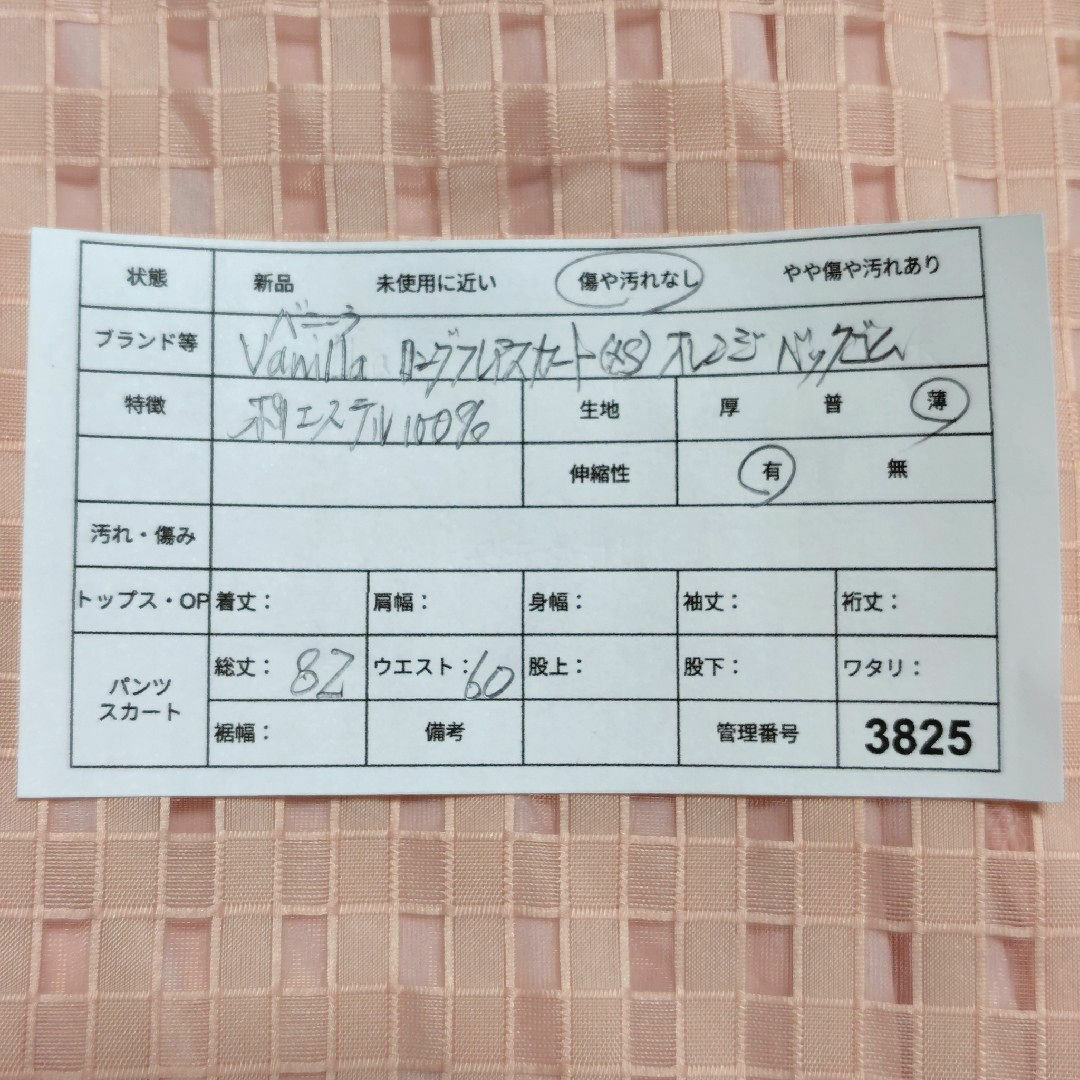 状態 新品 未使用に近い 傷や汚れなし やや傷や汚れあり
バニラ
ブランド等 Vanilla ロングフレアスカート(XS) オレンジ バックゴム
特徴 ポリエステル100% 生地 厚 普 薄
伸縮性 有 無
汚れ・傷み
トップス・OP 着丈： 肩幅： 身幅： 袖丈： 裄丈：
パンツ スカート 総丈：82 ウエスト：60 股上： 股下： ワタリ：
裾幅： 備考 管理番号 3825